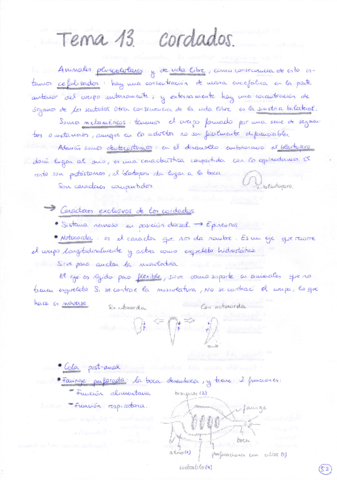 Tema 13. Cordados.
Animales pluricelulares y de vida libre, como consecuencia de esto es-
tamos cefalizados: hay una concentración de masa encefálica en la parte
anterior del cuerpo internamente, y externamente hay una concentración de
órganos de los sentidos. Otra consecuencia de la vida libre es la simetría bilateral.
Somos metaméricos: tenemos el cuerpo formado por una serie de segmen-
tos o metámeros, aunque en los adultos no son fácilmente diferenciables.
Además somos deuteróstomos: en el desarrollo embrionario el blastóporo
dará lugar al ano, es una característica compartida con los equinodermos. El
resto son protóstomos, el blastóporo da lugar a la boca.
Son caracteres compartidos.
blastóporo
→ Caracteres exclusivos de los cordados
• Sistema nervioso en posición dorsal → Epineuros
• Notocorda: es el carácter que nos da nombre. Es un eje que recorre
el cuerpo longitudinalmente y actúa como esqueleto hidrostático.
Sirve para anclar la musculatura.
El eje es rígido pero flexible, sirve como soporte en animales que no
tienen esqueleto. Si se contrae la musculatura, no se contrae el cuerpo, lo que
hace es moverse.
Sin notocorda
Con notocorda
• Cola post-anal
• Faringe perforada: la boca desemboca, y tiene 2 funciones:
- Función alimentaria
- Función respiratoria
faringe
boca
perforaciones con cilios (1)